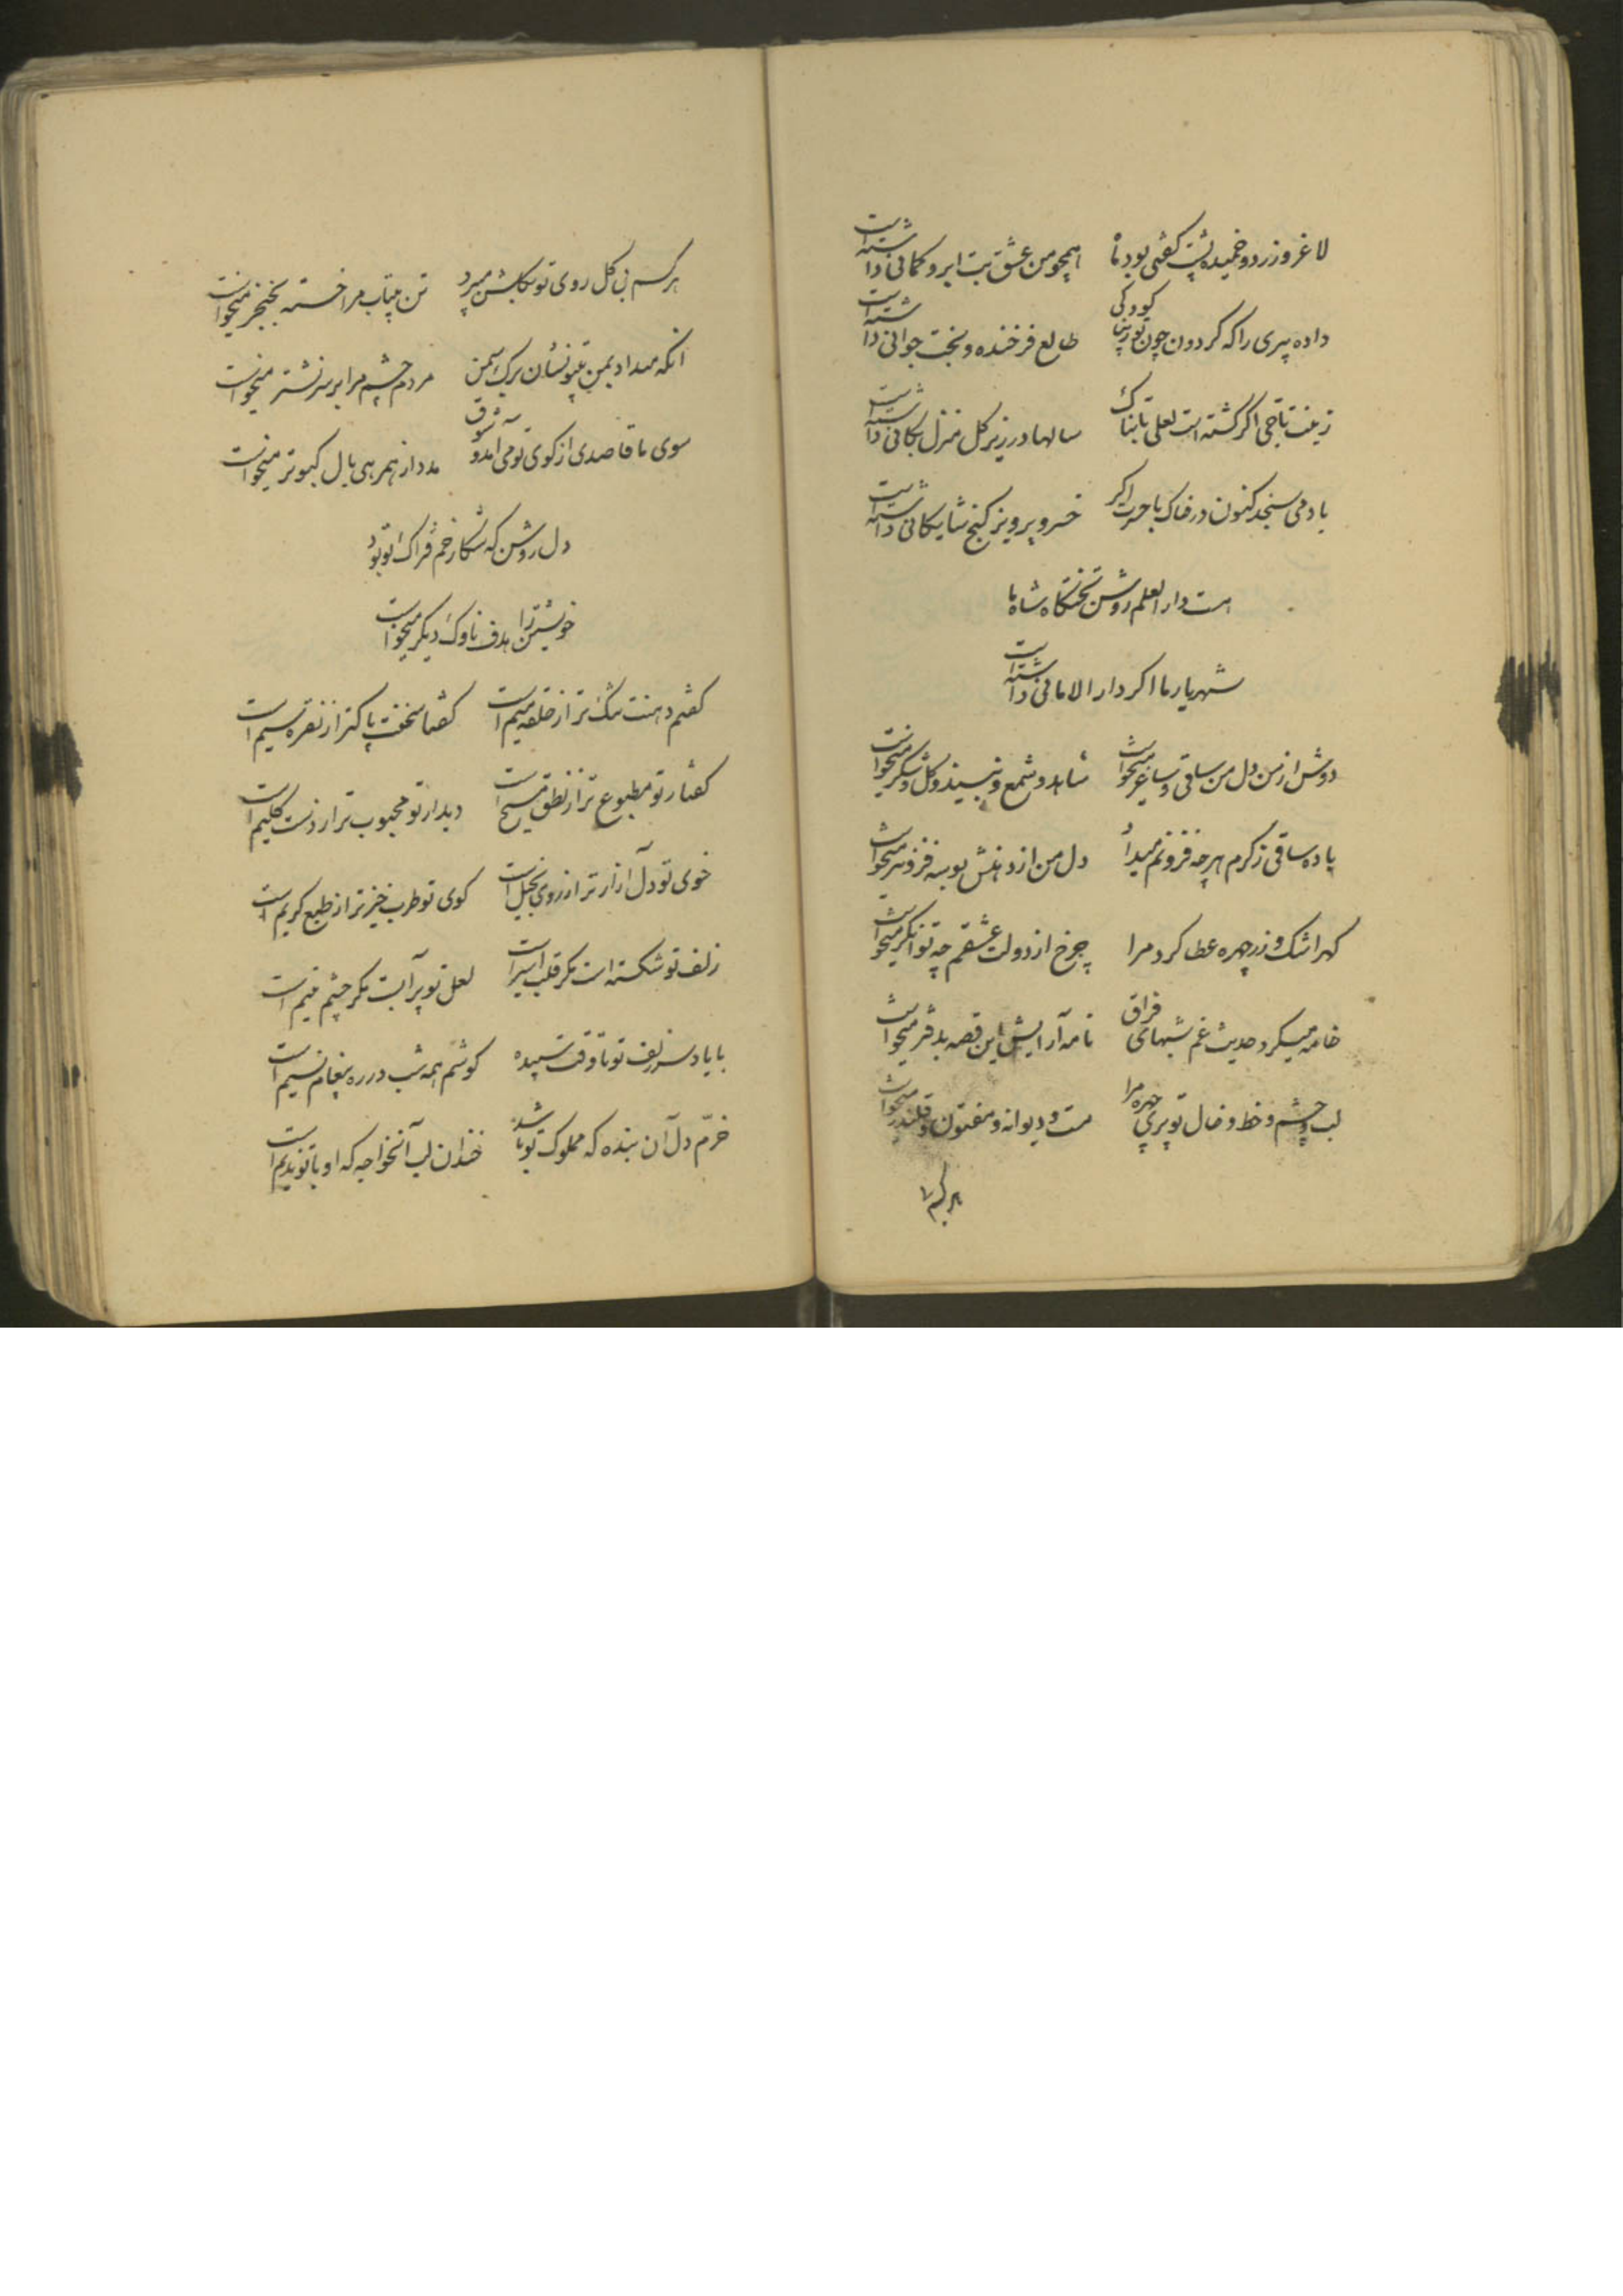 لاغر و زرد و خمیده پشت گفتی بود ماه همچو من عشق بت ابرو کمانی داشته است
داده پیری را که گردون چون تو زیبا کودکی طالع فرخنده و بخت جوانی داشته است
زینت تاجی اگر گشته است لعلی تابناک سالها در زیر گل منزل بکانی داشته است
باد می سنجد کنون در خاک با حسرت اگر خسرو پرویز گنج شایگانی داشته است
هست دار العلم روشن تختگاه شاه ما
شهریار ما اگر دار الامانی داشته است
دوش از من دل من ساقی و ساغر میخواست شاهد و شمع و نبیذ و گل و شکر میخواست
باده ساقی ز کرم هرچه فزونم میداد دل من از دهنش بوسه فزونتر میخواست
گهر اشک و زر چهره عطا کرد مرا چرخ از دولت عشقم چه توانگر میخواست
خامه میکرد حدیث غم شبهای فراق نامه آرایش این قصه بدفتر میخواست
لب و چشم و خط و خال تو پری چهره مرا مست و دیوانه و مفتون و قلندر میخواست
هر کسم
هر کسم بی گل روی تو بگلشن میبرد تن بیتاب مرا خسته بخنجر میخواست
آنکه میداد بمن بیتو نشان برگ سمن مردم چشم مرا بر سر نشتر میخواست
سوی ما قاصدی از کوی تو می آمد و شوق مدد از همرهی بال کبوتر میخواست
دل روشن که شکار خم فتراک تو بود
خویشتن را هدف ناوک دیگر میخواست
گفتم دهنت تنگ تر از حلقه میم است گفتا سخنت پاکتر از نقره سیم است
گفتار تو مطبوع تر از نطق مسیح است دیدار تو محبوب تر از دست کلیم است
خوی تو دل آزار تر از روی بخیل است کوی تو طرب خیز تر از طبع کریم است
زلف تو شکسته است مگر قلب اسیر است لعل تو پر آبست مگر چشم یتیم است
با یاد سر زلف تو تا وقت سپیده گوشم همه شب در ره پیغام نسیم است
خرّم دل آن بنده که مملوک تو باشد خندان لب آنخواجه که او با تو ندیم است